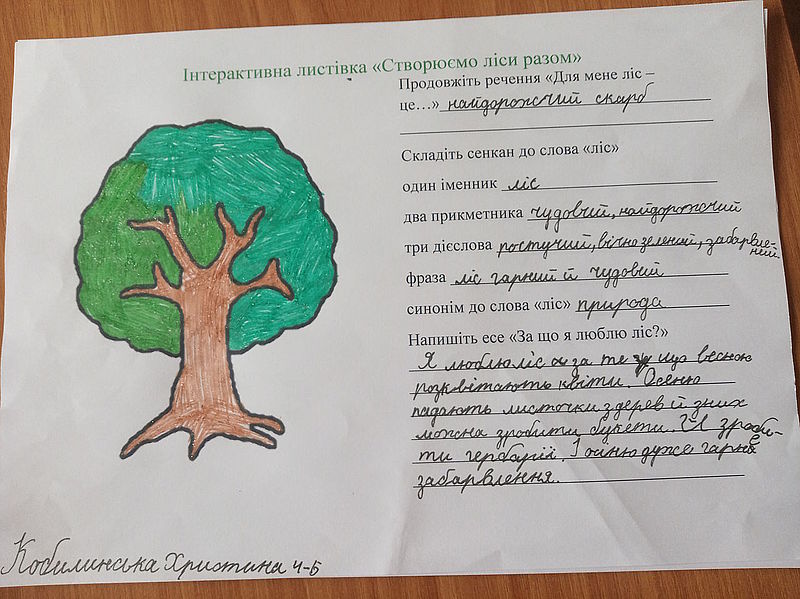 Інтерактивна листівка «Створюємо ліси разом»
Продовжіть речення «Для мене ліс –
це…» найдорожчий скарб
Складіть сенкан до слова «ліс»
один іменник ліс
два прикметника чудовий, найдорожчий
три дієслова ростучий, вічно зелений, забарвле-
ний
фраза ліс гарний й чудовий
синонім до слова «ліс» природа
Напишіть есе «За що я люблю ліс?»
Я люблю ліс за те що весною
розквітають квіти. Осеню
падають листочки з дерев й зних
можна зробити букети. Й зроби-
ти гербарій. І осиню дуже гарне
забарвлення.
Кобилинська Христина 4-Б